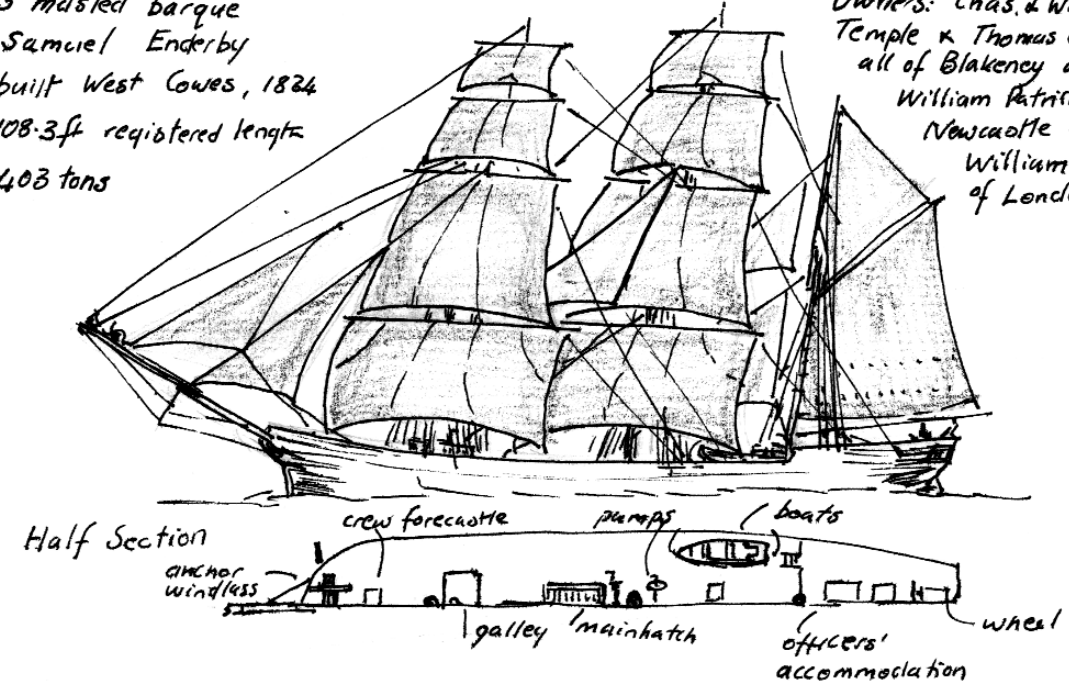 3 masted barque
Samuel Enderby
built West Cowes, 1834
108.3ft registered length
403 tons
Owners: Chas. &
Temple & Thomas
all of Blakeney
William Patri
Newcastle
William
of Lond
Half Section
crew forecastle
pumps
boats
anchor
windlass
galley
mainhatch
officers'
accommodation
wheel